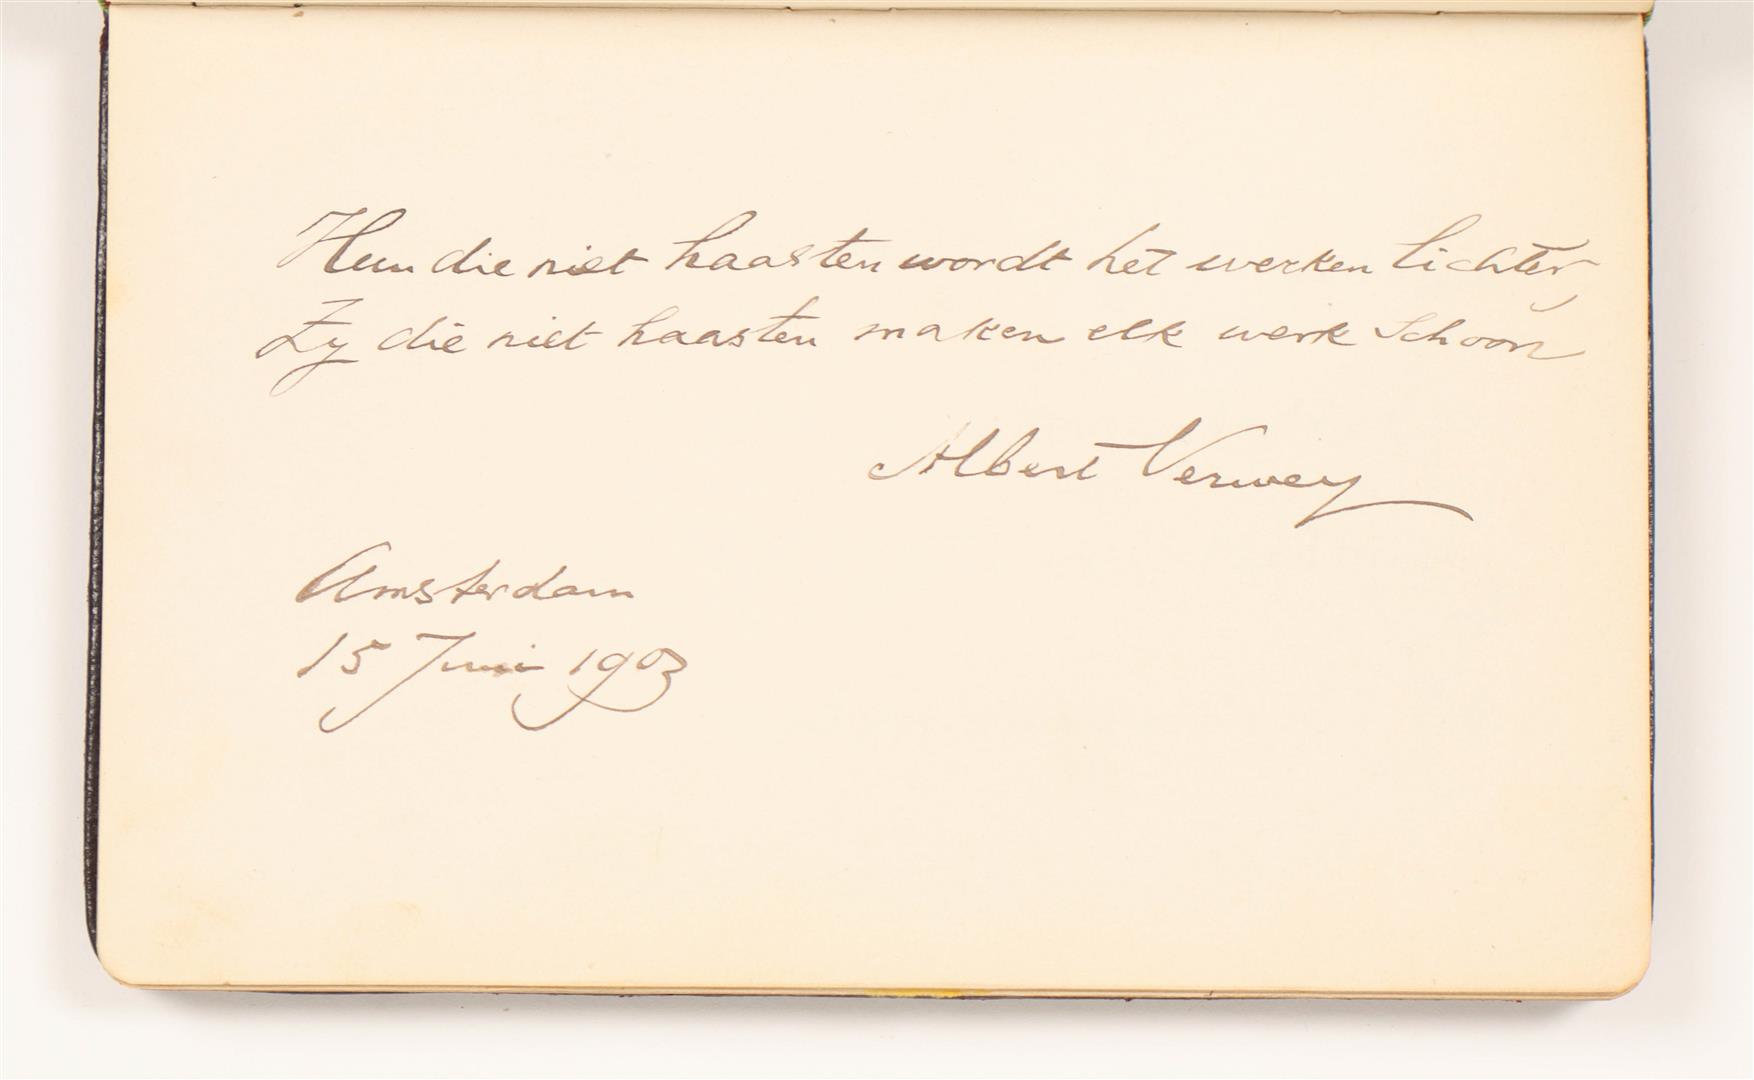 Hun die niet haasten wordt het werken lichter,
Zy die niet haasten maken elk werk schoon
Albert Verwey
Amsterdam
15 Juni 1903